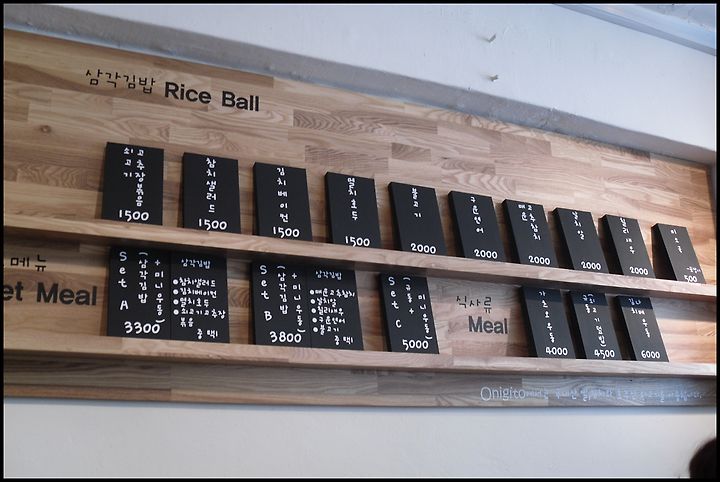 삼각김밥 Rice Ball
쇠고기 고추장볶음
1500
참치샐러드
1500
김치베이컨
1500
멸치호두
1500
불고기
2000
구운연어
2000
매운고추참치
2000
날치알
2000
칠리새우
2000
미소국
500
메뉴
et Meal
Set A
(삼각김밥+미니우동)
3300
삼각김밥
참치샐러드
김치베이컨
멸치호두
쇠고기고추장볶음
중 택1
Set B
(삼각김밥+미니우동)
3800
삼각김밥
매운고추참치
날치알
칠리새우
구운연어
불고기
중 택1
Set C
5000
식사류
Meal
가쓰오우동
4000
4500
김치나베우동
6000
Onigito에서는